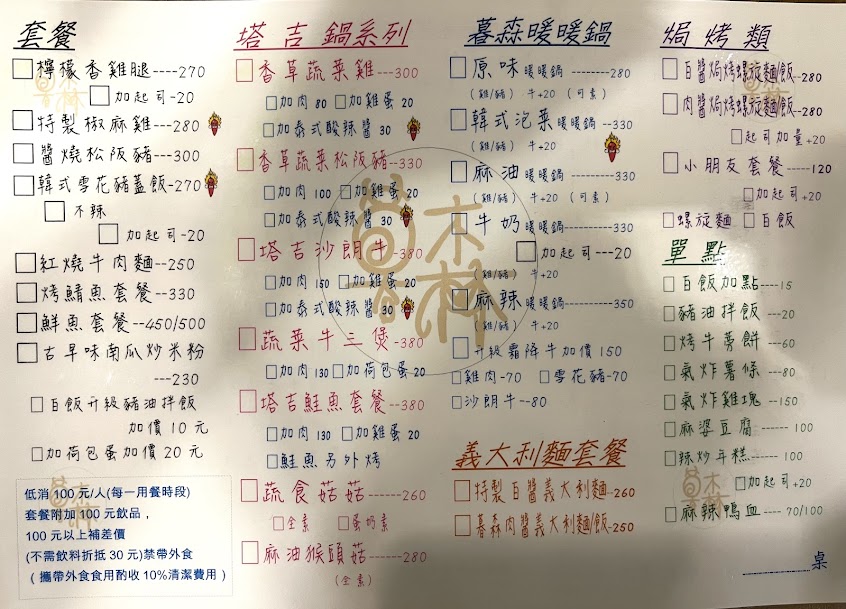 套餐
檸檬香雞腿----270
加起司-20
特製椒麻雞---280
醬燒松阪豬---300
韓式雪花豬蓋飯-270
不辣
加起司-20
紅燒牛肉麵--250
烤鯖魚套餐--330
鮮魚套餐--450/500
古早味南瓜炒米粉
---230
白飯升級豬油拌飯
加價10元
加荷包蛋加價20元
低消 100 元/人(每一用餐時段)
套餐附加 100 元飲品，
100 元以上補差價
(不需飲料折抵 30 元)禁帶外食
（攜帶外食食用酌收 10%清潔費用）
塔吉鍋系列
香草蔬菜雞---300
加肉80 加雞蛋20
加泰式酸辣醬30
香草蔬菜松阪豬--330
加肉100 加雞蛋20
加泰式酸辣醬30
塔吉沙朗牛-380
加肉150 加雞蛋20
加泰式酸辣醬30
蔬菜牛三煲-380
加肉130 加荷包蛋20
塔吉鮭魚套餐--380
加肉130 加雞蛋20
鮭魚另外烤
蔬食菇菇------260
全素 蛋奶素
麻油猴頭菇------280
(全素)
暮森暖暖鍋
原味暖暖鍋--------280
(雞/豬) 牛+20 (可素)
韓式泡菜暖暖鍋--330
(雞/豬) 牛+20
麻油暖暖鍋--------330
(雞/豬) 牛+20 (可素)
牛奶暖暖鍋--------330
加起司---20
(雞/豬) 牛+20
麻辣暖暖鍋--------350
(雞/豬) 牛+20
升級霜降牛加價150
雞肉-70 雪花豬-70
沙朗牛--80
義大利麵套餐
特製白醬義大利麵--260
暮森肉醬義大利麵/飯-250
焗烤類
白醬焗烤螺旋麵飯-280
肉醬焗烤螺旋麵飯-280
起司加量+20
小朋友套餐-----120
加起司+20
螺旋麵 白飯
單點
白飯加點---15
豬油拌飯--20
烤牛蒡餅---60
氣炸薯條---80
氣炸雞塊--150
麻婆豆腐----100
辣炒年糕----100
加起司+20
麻辣鴨血---70/100
桌
暮森